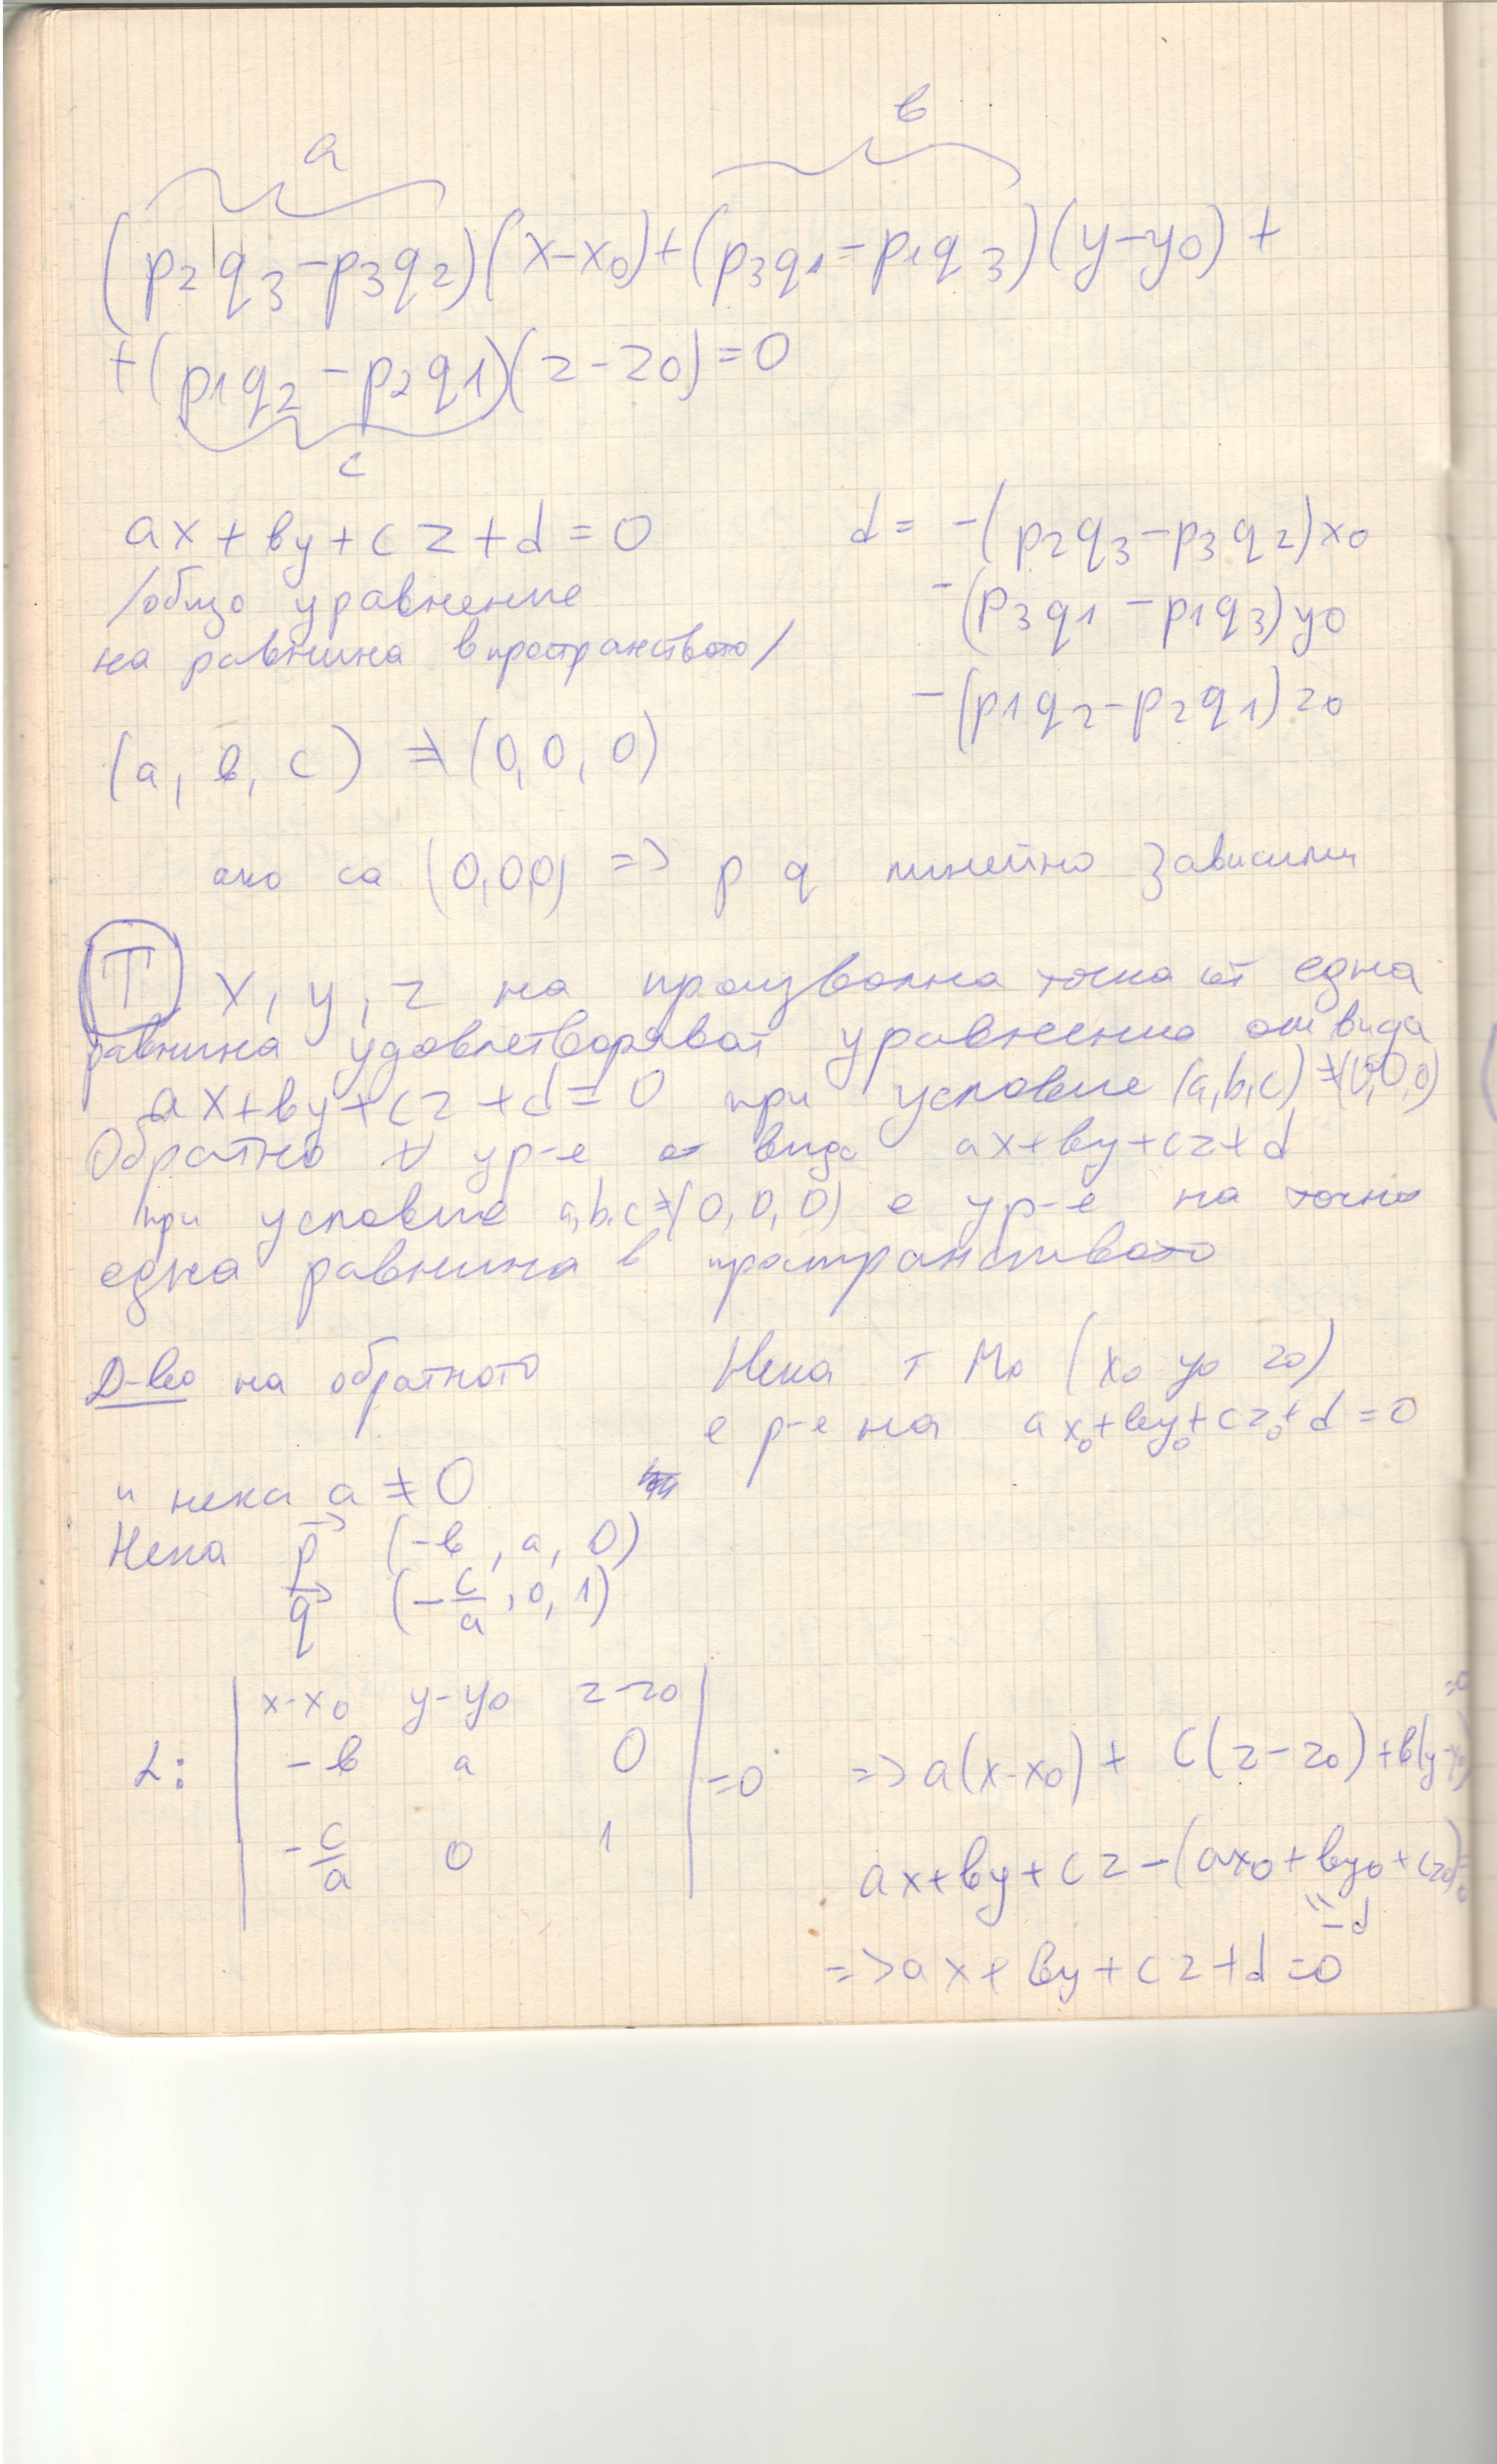 a b
(p2q3-p3q2)(x-x0)+(p3q1-p1q3)(y-y0)+
+(p1q2-p2q1)(z-z0)=0
c
ax+вy+cz+d=0
/общо уравнение
на равнина в пространството/
d= -(p2q3-p3q2)x0
-(p3q1-p1q3)y0
-(p1q2-p2q1)z0
(a, в, c) ≠ (0, 0, 0)
ако са (0,0,0) => p q линейно зависими
Т x, y, z на произволна точка от една
равнина удовлетворяват уравнение от вида
ax+вy+cz+d=0 при условие (a,b,c)≠(0,0,0)
Обратно ∀ ур-е от вида ax+вy+cz+d
при условие a,b,c≠(0,0,0) е ур-е на точно
една равнина в пространството
Д-во на обратното
Нека т M0 (x0 y0 z0)
е р-е на ax0+вy0+cz0+d=0
и нека a≠0
Нека p→ (-в, a, 0)
q→ (-c/a, 0, 1)
| x-x0 y-y0 z-z0 |
α: | -в a 0 | =0 => a(x-x0)+ c(z-z0)+в(y-y0)=0
| -c/a 0 1 |
ax+вy+cz-(ax0+вy0+cz0)=0
"
-d
=> ax+вy+cz+d=0